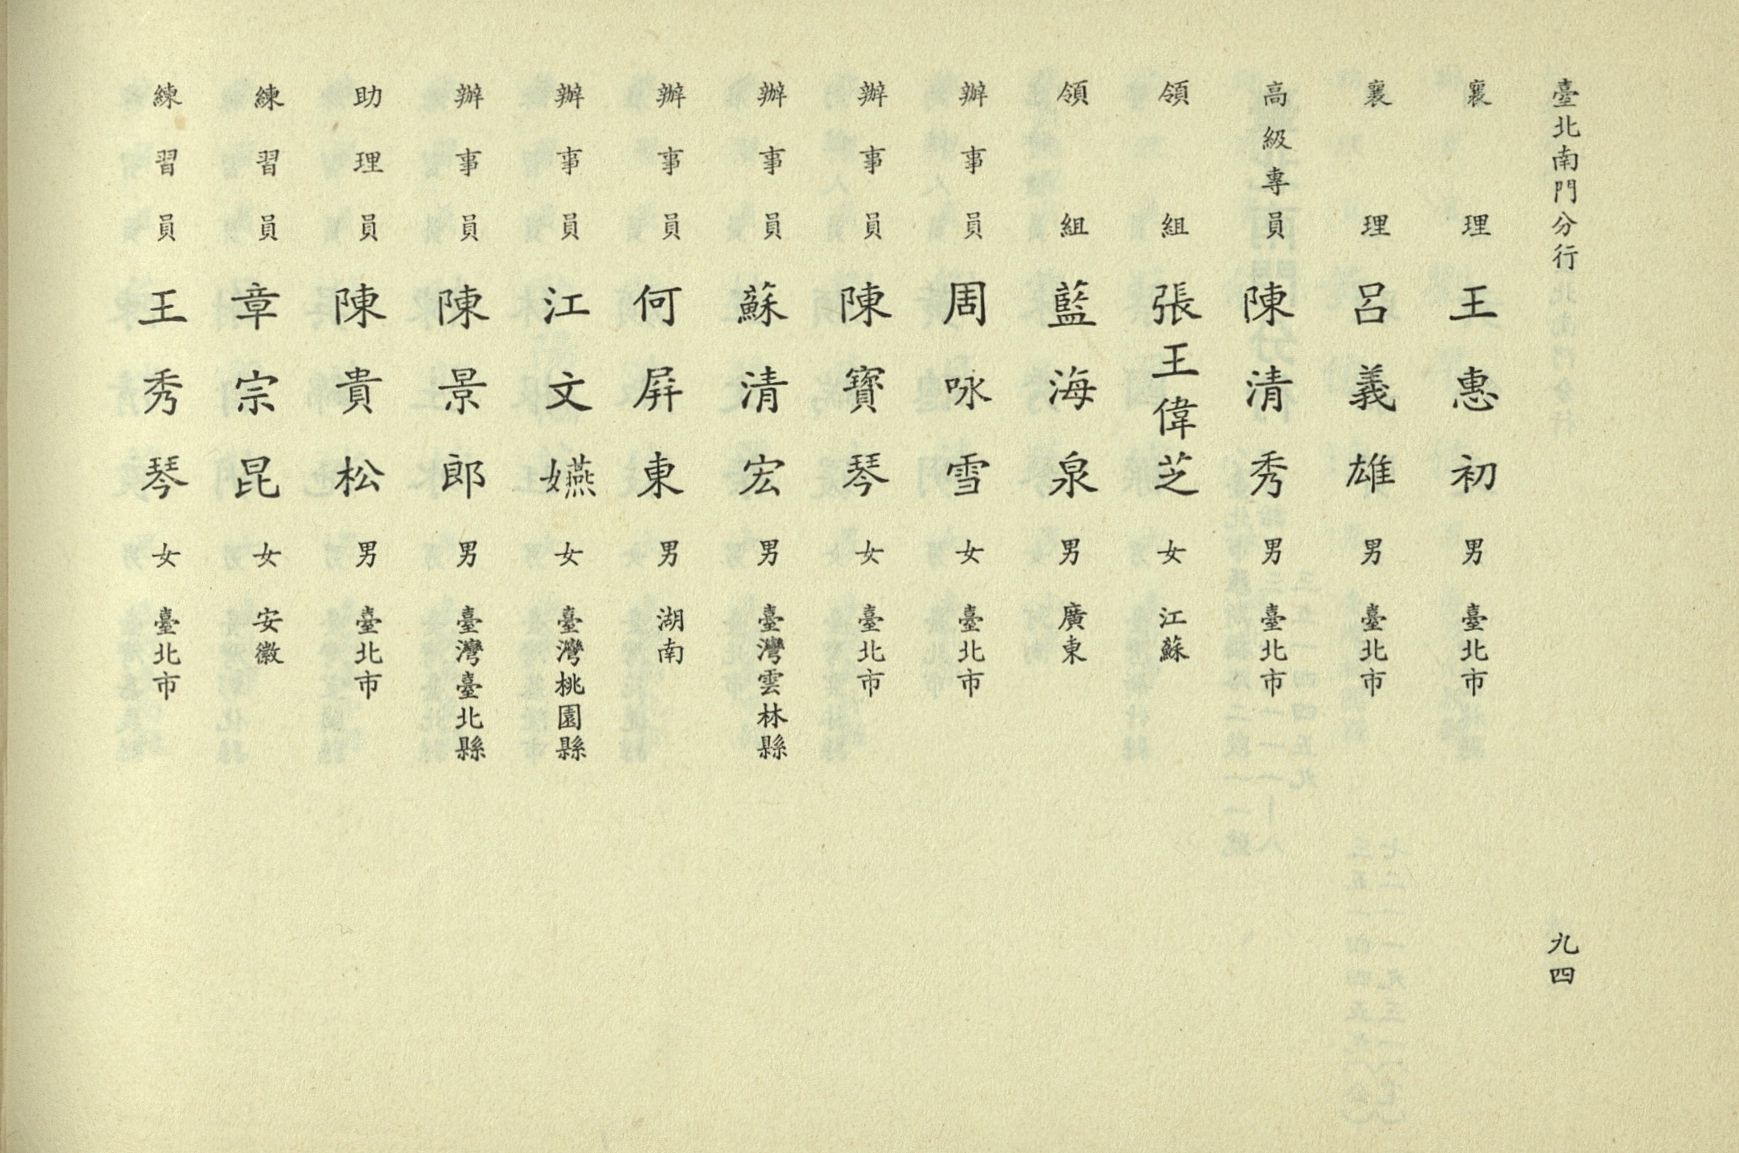 臺北南門分行
九四
襄理王惠初男臺北市
襄理呂義雄男臺北市
高級專員陳清秀男臺北市
領組張王偉芝女江蘇
領組藍海泉男廣東
辦事員周咏雪女臺北市
辦事員陳寶琴女臺北市
辦事員蘇清宏男臺灣雲林縣
辦事員何屏東男湖南
辦事員江文嬿女臺灣桃園縣
辦事員陳景郎男臺灣臺北縣
助理員陳貴松男臺北市
練習員章宗昆女安徽
練習員王秀琴女臺北市